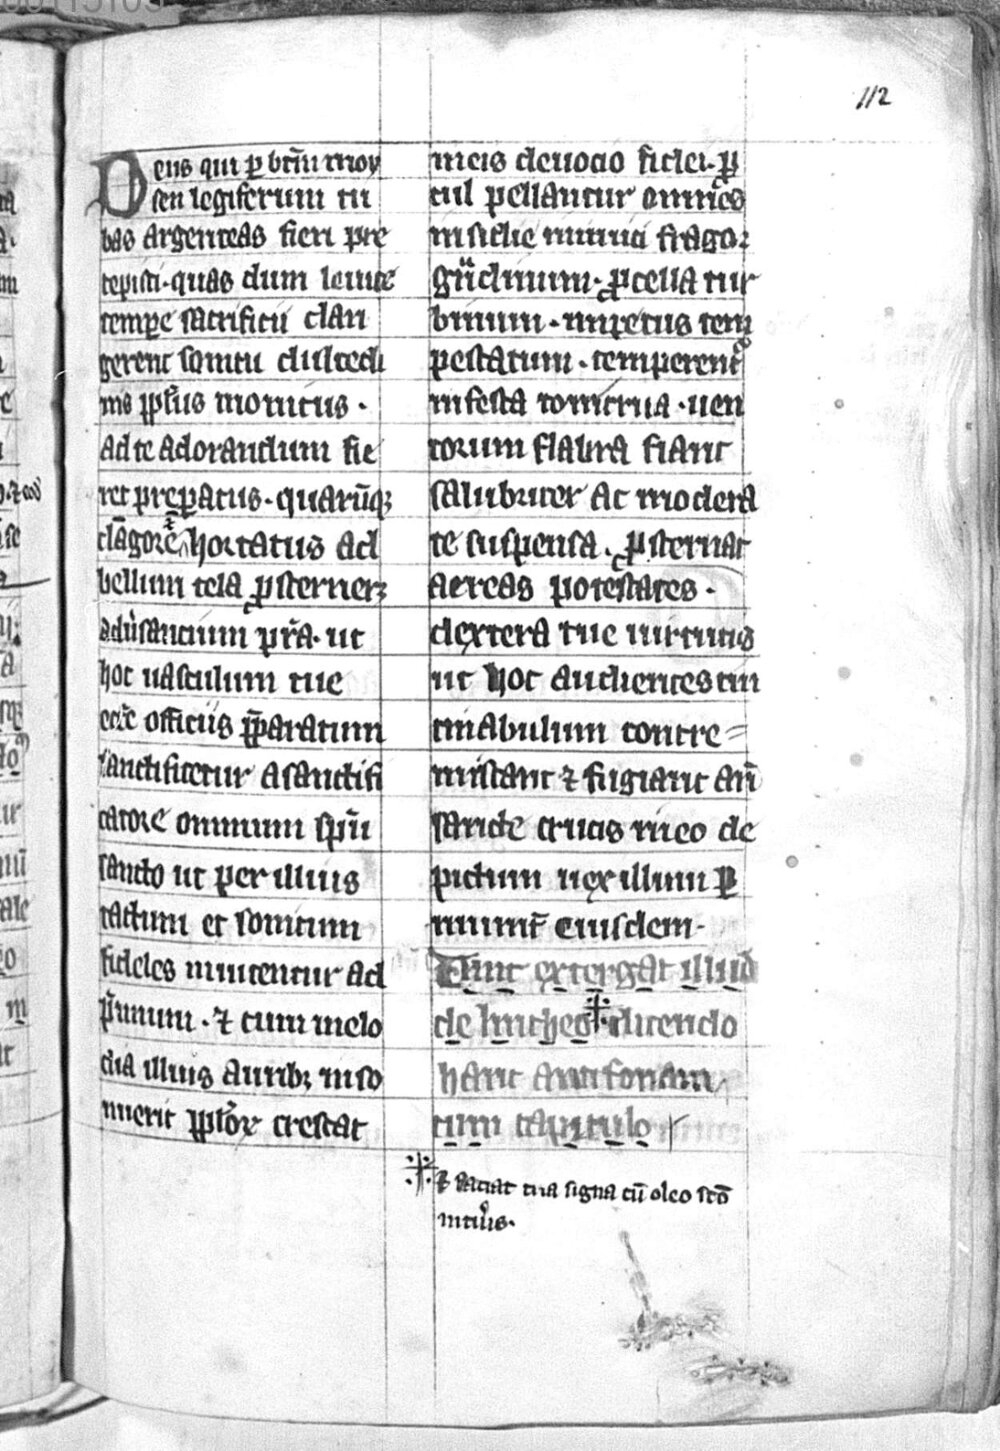 112
Deus qui p btm moy
sen legiferum tu
bas argenteas fieri pre
cepisti·quas dum leuite
tempe sacrificii clan
gerent sonitu dulcedi
nis ppłus monitus ·
ad te adorandum fie
ret preparatus·quarūqꝫ
clāgore ⁊ hortatus ad
bellum tela ꝓsterneꝫ
adūsantium pr̄a·ut
hoc uasculum tue
eccłe officiis p̄paratum
sanctificetur a sanctifi
catore omnium spū
sancto ut per illius
tactum et sonitum
fideles inuitentur ad
p̄mium·⁊ cum melo
dia illius auribꝫ inso
nuerit ppłoꝝ crescat
in eis deuotio fidei·ꝓ
cul pellantur omnes
insidie inimici fragoꝛ
gn̄dinum·ꝓcella tur
binum·impetus tem
pestatum·temperent᷑
infesta tonitrua·uen
torum flabra fiant
salubriter ac modera
te suspensa·ꝓsternat
aereas potestates·
dextera tue uirtutis
ut hoc audientes tin
tinabulum contre=
miscant ⁊ fugiant an̄
sancte crucis in eo de
pictum uexillum P
nnumt̄ eiusdem·
Tunc extergat illud
de lintheo dicendo
hanc antifonam
cum capitulo
⁊ faciat tria signa cū oleo scō
intius·